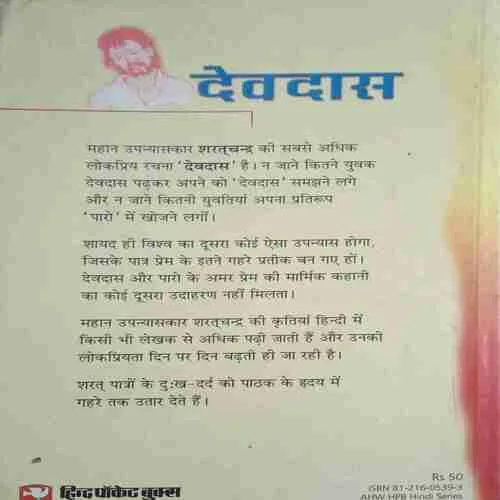 देवदास
महान उपन्यासकार शरत्‌चन्द्र की सबसे अधिक
लोकप्रिय रचना 'देवदास' है। न जाने कितने युवक
देवदास पढ़कर अपने को 'देवदास' समझने लगे
और न जाने कितनी युवतियां अपना प्रतिरूप
'पारो' में खोजने लगीं।
शायद ही विश्व का दूसरा कोई ऐसा उपन्यास होगा,
जिसके पात्र प्रेम के इतने गहरे प्रतीक बन गए हों।
देवदास और पारो के अमर प्रेम की मार्मिक कहानी
का कोई दूसरा उदाहरण नहीं मिलता।
महान उपन्यासकार शरत्‌चन्द्र की कृतियां हिन्दी में
किसी भी लेखक से अधिक पढ़ी जाती हैं और उनकी
लोकप्रियता दिन पर दिन बढ़ती ही जा रही है।
शरत् पात्रों के दुःख-दर्द को पाठक के हृदय में
गहरे तक उतार देते हैं।
हिन्द पॉकेट बुक्स
Rs 50
ISBN 81-216-0539-3
AHW HPB Hindi Series